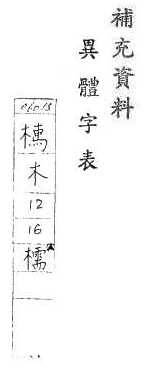 補充資料
異體字表
06015
木
12
16
檽